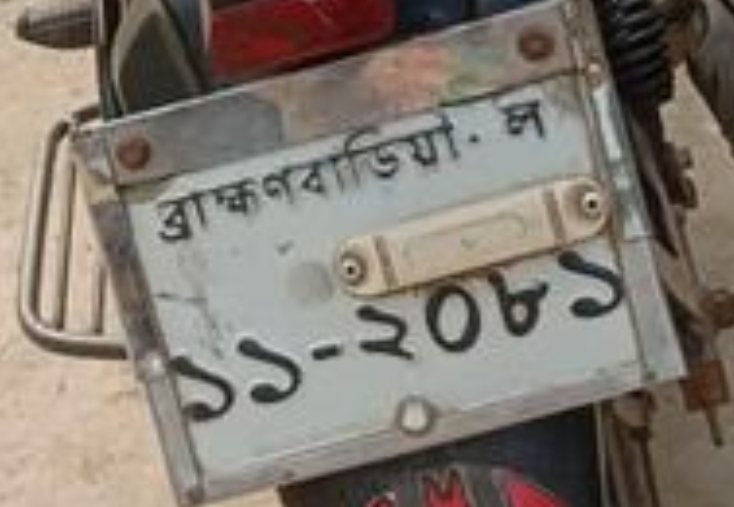 ব্রাহ্মণবাড়িয়া-ল
১১-২০৮১